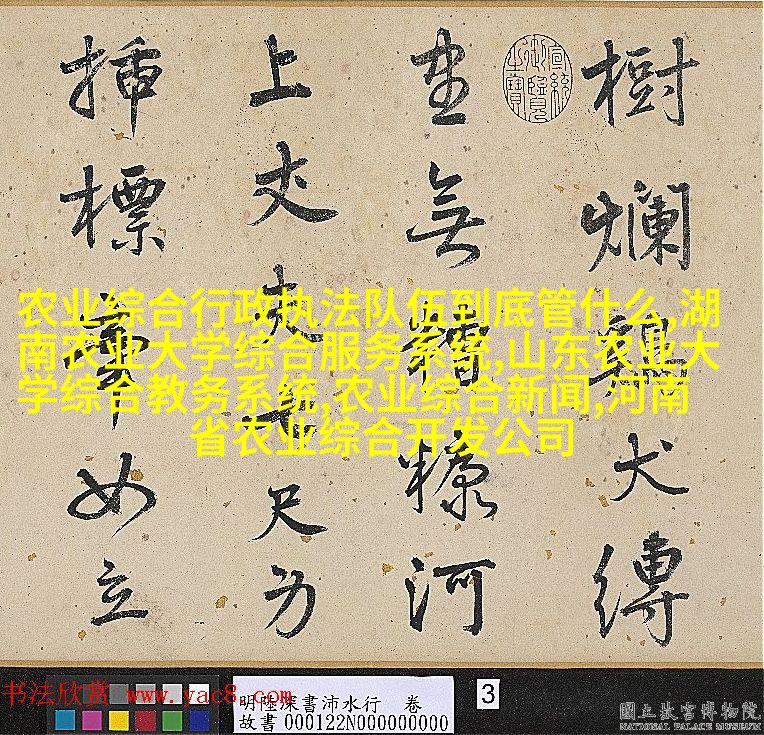 樹爛犬縛
無糠河
上丈夫尺
插標女立
宣統御覽之寶
农业综合行政执法队伍到底管什么,湖
南农业大学综合服务系统,山东农业大
学综合教务系统,农业综合新闻,河南
省农业综合开发公司
书法欣赏 www.yac8.com
明陸深書沛水行 卷
故書 000122N000000000
3
國立故宮博物院
NATIONAL PALACE MUSEUM